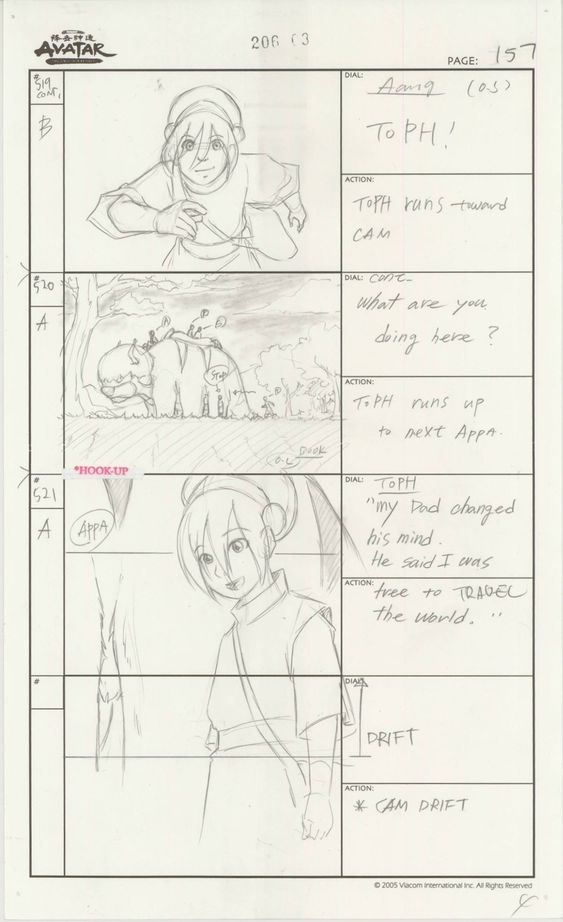 降去神通
AVATAR
206 03
PAGE: 157
#
519
CONT.
B
DIAL:
Aang (O.S)
TOPH!
ACTION:
TOPH runs toward
CAM
#
520
A
STOP
DOOR
(O.L)
DIAL: cont-
What are you
doing here?
ACTION:
TOPH runs up
to next APPA.
*HOOK-UP
#
521
A
APPA
DIAL: TOPH
"my Dad changed
his mind.
He said I was
ACTION:
free to TRAVEL
the world."
#
DIAL:
DRIFT
ACTION:
* CAM DRIFT
© 2005 Viacom International Inc. All Rights Reserved